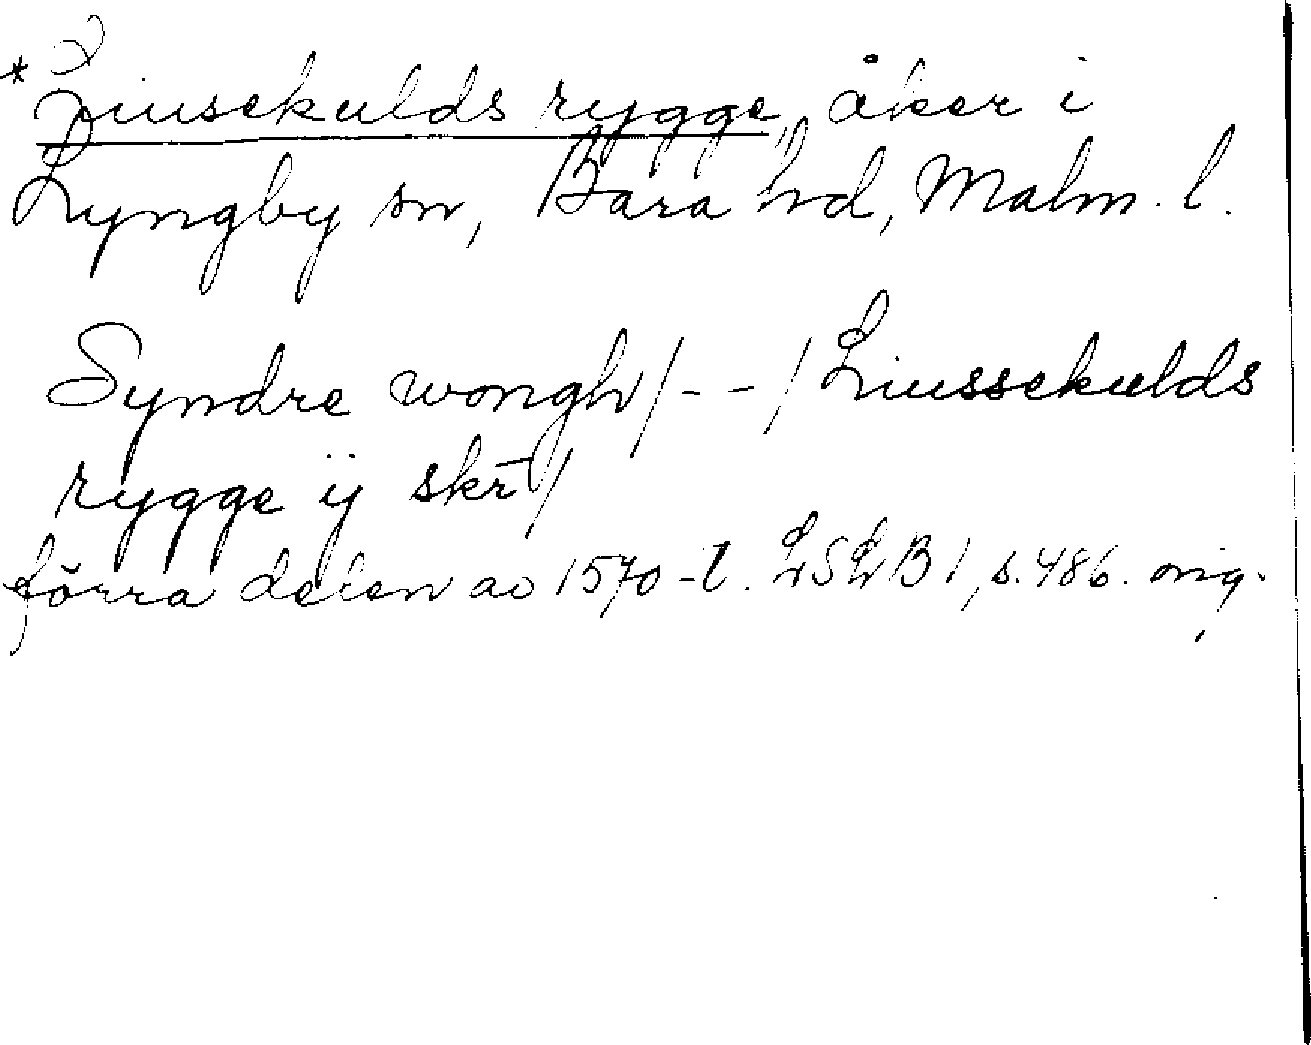 * Liusekulds rygge, åker i
Lyngby sn, Bara hd, Malm. l.
Syndre wongh/ - - / Liussekulds
rygge ij skr̄/
förra delen av 1570-t. LSLB 1, s. 486. orig.